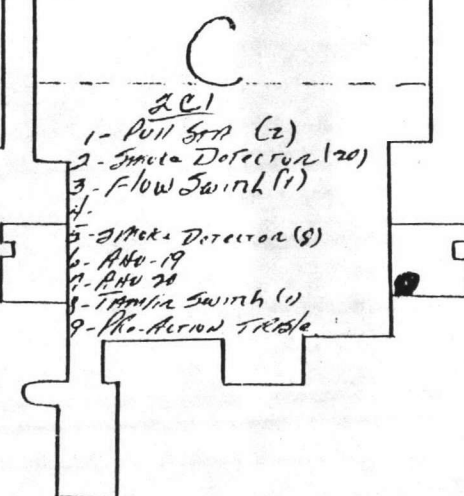 C
2C1
1- Pull Sta (2)
2- Smoke Detector (20)
3- Flow Switch (1)
4-
5- Smoke Detector (8)
6- AHU-19
7- AHU 20
8- Tamper Switch (1)
9- Pre-Action Trble